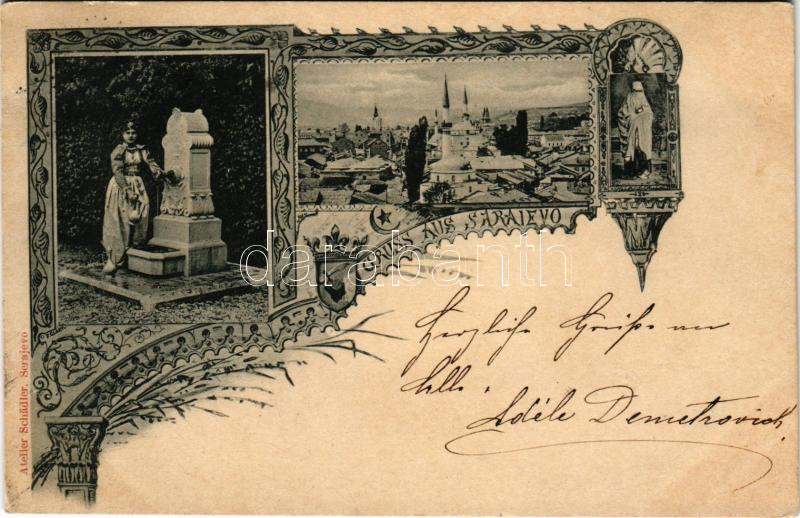 GRUSS AUS SARAJEVO
darabanth
Herzliche Grüße an
Alle.
Adéle Demetrovich
Atelier Schädler, Serajevo